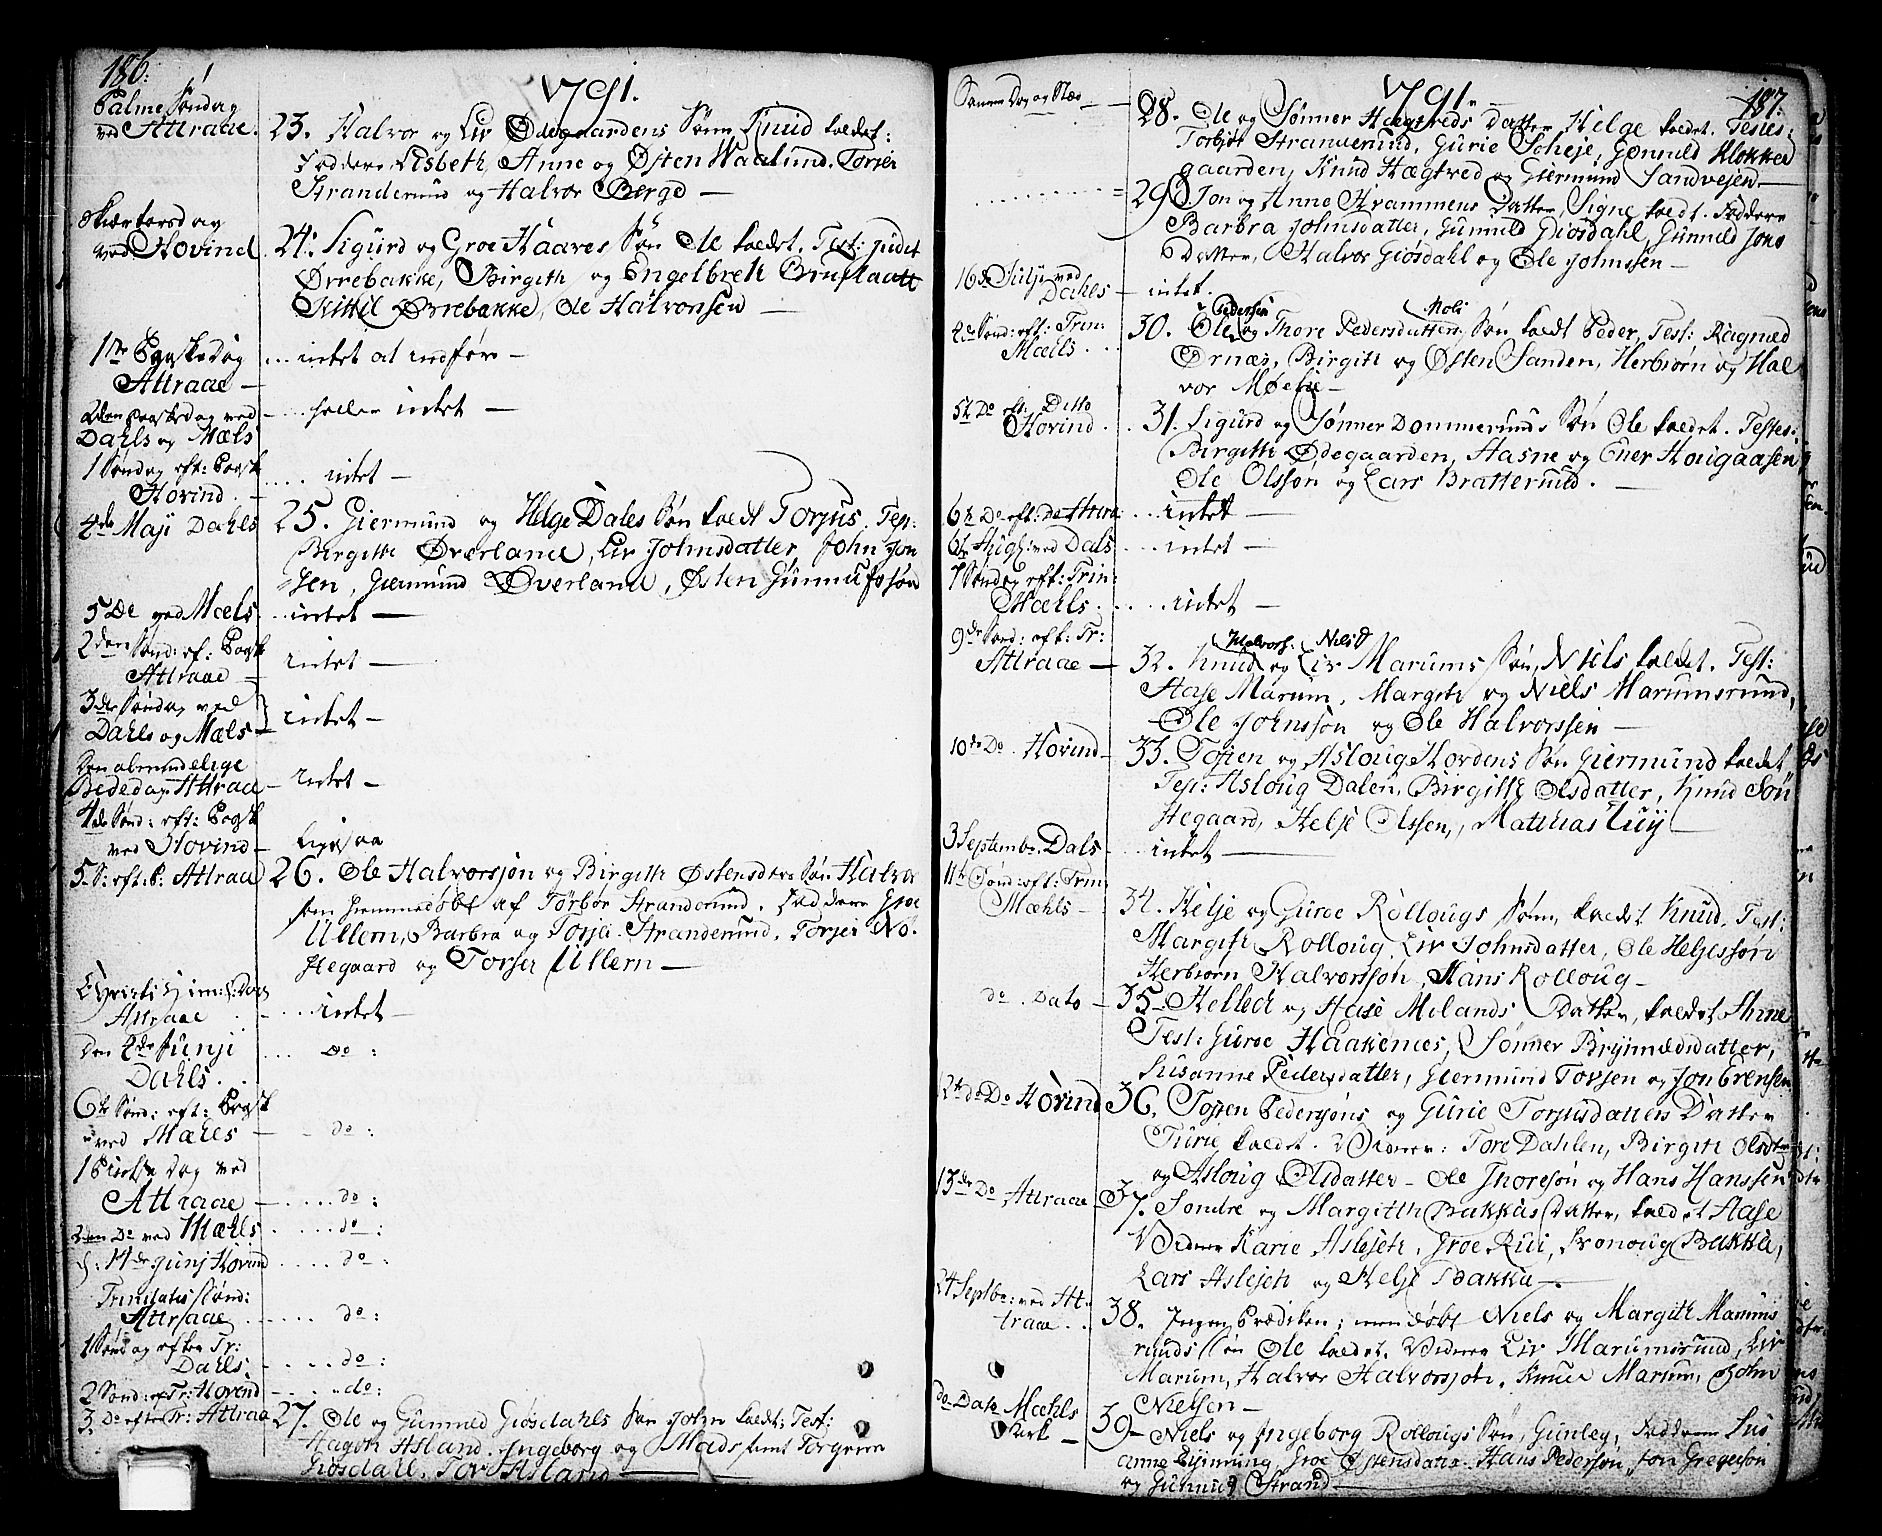 186.
1791.
Palme Søndag
ved Attraae.
23. Halvor og Liv Ødegaardens Søn Knud kaldet:
Faddere Lisbeth, Anne og Østen Waalund. Torjer
Stranderund og Halvor Berge —
Skiærtorsdag
ved Hovind
24. Sigurd og Groe Haaves Søn Ole kaldet. Test: Judit
Ørrebakke, Birgith og Engelbreth Bruflautt
Kittil Ørrebakke, Ole Halvorsen —
1te Paaskedag
Attraae —
... intet at indføre —
2den Paaskedag ved
Dahls og Mæls
... heller intet —
1 Søndag eft: Paask
Hovind . —
.... intet —
4de Maji Dahls
25. Giermund og Helge Dales Søn kaldt Torjus. Test:
Birgitte Øverland, Liv Johnsdatter, John Jon
sen, Giermund Øverland, Østen Gunnulfssøn
5 De ved Mæls
... intet —
2den Sønd: ef: Paask
Attraae —
intet —
3de Søndag ved
Dahls og Mæls —
intet —
Den almindelige
Bededag Attraae —
intet —
4de Sønd: eft: Paask
ved Hovind —
Ligesaa
5 S: eft: P: Attraae
26. Ole Halvorsøn og Birgitte Østensdtrs Søn Halvor
som hiemmedøbt af Torbør Stranderund. Faddere Groe
Ullern, Barbra og Torjer Stranderund, Torjer No-
Hegaard og Torjer Ullern —
Christi Him:f: Dag
Attraae
.... intet —
Den 2de Junji
Dahls .
.... Do :
6te Sønd: eft: Paask
ved Mæhls —
- do :
1 Pintse Dag ved
Attraae —
.... do :
2den Do ved Mæhls
.... do :
d: 14de Junj Hovind
.... do :
Trinitatis Sønd:
Attraae
.... do :
1 Søndag efter Tr:
Dahls:
.... do :
2 Sønd: ef Tr: Hovind
- .. do :
3. Do efter Tr: Attraa
27. Ole og Gunnild Giøsdahls Søn John kaldt: Test:
Aagoth Asland, Ingeborg og Mads samt Torgrim
Giøsdahl, Tov Asland —
187.
1791.
Samme Dag og Stæd —
28. Ole og Sønner Hægtveds Datter Helge kaldet. Testes:
Torbjør Stranderund, Gurie Scheje, Gunnild Klokker
gaarden, Knud Hægtved og Giermund Sandvejen —
29. Jon og Anne Krammens Datter, Signe kaldt. Faddere
Barbra Johnsdatter, Gunnild Giøsdahl, Gunnild Jons
Datter, Halvor Giøsdahl og Ole Johnssen —
16de Julji ved
Dahls
— intet.
4de Sønd: eft: Trin:
Mæls . . .
Pedersen Moli
30. Ole og Thore Pedersdatters Søn kaldt Peder, Test: Ragnild
Ørnæs, Birgitt og Østen Sanden, Herbiørn og Hal
vor Møelie —
5te Do eft: Ditto
Hovind
31. Sigurd og Sønner Dommerunds Søn Ole kaldet. Testes:
Birgitte Ødegaarden, Aasne og Ener Hougaasen
Ole Olssøn og Lars Bratterund. —
6te Do eft: Do Attra:
... intet —
6te Aug: ved Dals
... intet —
7 Søndag eft: Trin:
Mæhls .
.... intet —
9de Sønd: eft: Tr:
Attraae —
Halvors: Nielsd
32. Knud og Liv Marums Søn, Niels kaldet. Test:
Aase Marum, Margith og Niels Marumsrund,
Ole Johnssøn og Ole Halvorssen —
10de Do . Hovind
33. Tosten og Asloug Hordens Søn Giermund kaldet
Test: Asloug Dalen, Birgitte Olsdatter, Knud Søn
Hegaard, Helje Olssen, Matthias Luy
3 Septembr. Dals
— intet —
11te Sønd: eft: Trin:
Mæhls —
34. Helje og Guroe Rollougs Søn, kaldet Knud, Test:
Margith Rolloug, Liv Johnsdatter, Ole Heljessøn
Herbiørn Halvorssøn, Hans Rolloug —
do . Dato —
35. Helleck og Aase Milands Datter, kaldet Anne
Test: Guroe Haakenæs, Sønner Brynildsdatter,
Susanne Pedersdatter, Giermund Torjsen og Jon Erensen
12te do Do Hovind
36. Tosten Pedersøns og Gurie Torjusdatters Datter
Turie kaldet. Vidner: Tore Dahlen, Birgith Olsdtr
og Asloug Olsdatter - Ole Thoresøn og Hans Hanssen
13de Do Attraae
37. Sondre og Margitth Bakkus Datter, kaldet Aase
Vidner Karie Aslejeth, Groe Rui, Ronoug Bakku,
Lars Aslejeth og Helje Bakku —
24 Septbr: ved At-
traae . .
38. Ingen Prædiken; men døbt Niels og Margith Marums
runds Søn Ole kaldet. Vidner Liv Marumsrund, Liv
Marum, Halvor Halvorssøn, Knud Marum, John
Nielsen —
do Dato Mæhls
Kirk —
39 — Niels og Ingeborg Rollougs Søn, Gunley, Faddere Sus
anne Lønning, Groe Østensdatter, Hans Pedersøn, Jon Gregersøn
og Gunnuf Strand —